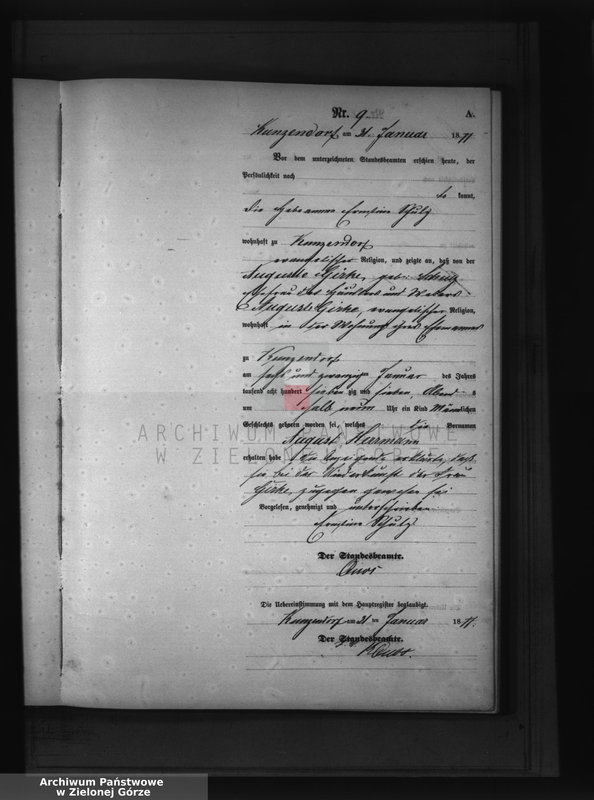 Nr. 9. A.
Kunzendorf am 31. Januar 1877
Vor dem unterzeichneten Standesbeamten erschien heute, der
Persönlichkeit nach
be kannt,
die Hebamme Ernstine Schulz
wohnhaft zu Kunzendorf
evangelischer Religion, und zeigte an, daß von der
Auguste Girke, geb.
Ehefrau des Häuslers und Webers
August Girke, evangelischer Religion,
wohnhaft in der Wohnung ihres Ehemannes
zu Kunzendorf
am sechs und zwanzigsten Januar des Jahres
tausend acht hundert sieben zig und sieben, Abend s
um halb neun Uhr ein Kind Männlichen
Geschlechts geboren worden sei, welches die Vornamen
August Herrmann
erhalten habe. Die Anzeigende erklärte, daß
sie bei der Niederkunft der Frau
Girke, zugegen gewesen sei
Vorgelesen, genehmigt und unterschrieben
Ernstine Schulz
Der Standesbeamte.
Die Uebereinstimmung mit dem Hauptregister beglaubigt.
Kunzendorf am 31 ten Januar 1877.
Der Standesbeamte.
ARCHIWUM PAŃSTWOWE
W ZIELONEJ GÓRZE
Archiwum Państwowe
w Zielonej Górze